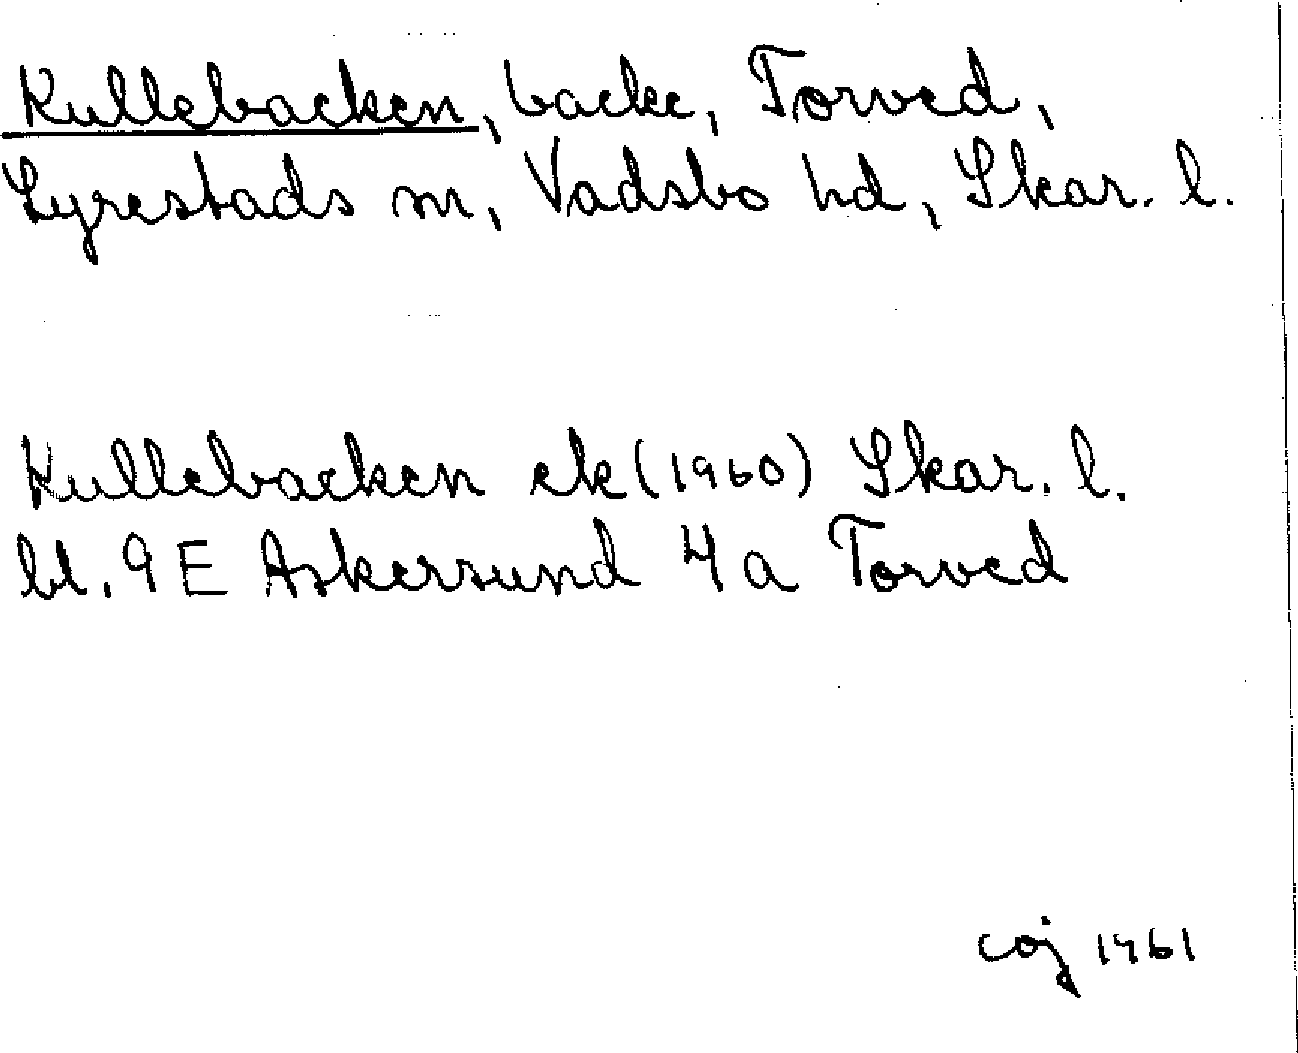 Kullebacken, backe, Torved,
Lyrestads sn, Vadsbo hd, Skar. l.
Kullebacken ek (1960) Skar. l.
bl. 9 E Askersund 4 a Torved
coj 1961